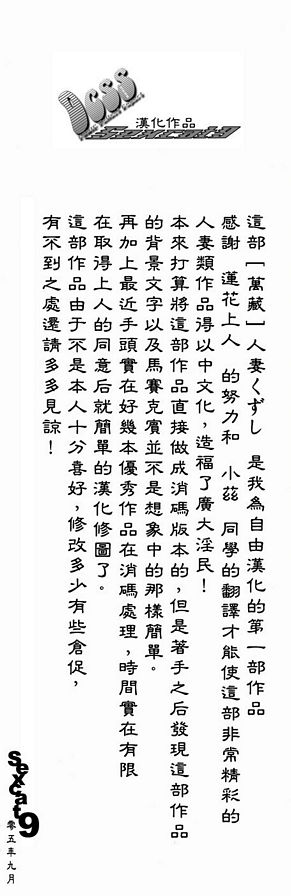 漢化作品
這部［萬藏］人妻くずし 是我為自由漢化的第一部作品
感謝 蓮花上人 的努力和 小茲 同學的翻譯才能使這部非常精彩的
人妻類作品得以中文化，造福了廣大淫民！
本來打算將這部作品直接做成消碼版本的，但是著手之后發現這部作品
的背景文字以及馬賽克賓並不是想象中的那樣簡單。
再加上最近手頭實在好幾本優秀作品在消碼處理，時間實在有限
在取得上人的同意后就簡單的漢化修圖了。
這部作品由于不是本人十分喜好，修改多少有些倉促，
有不到之處還請多多見諒！
sexcat9
零五年九月